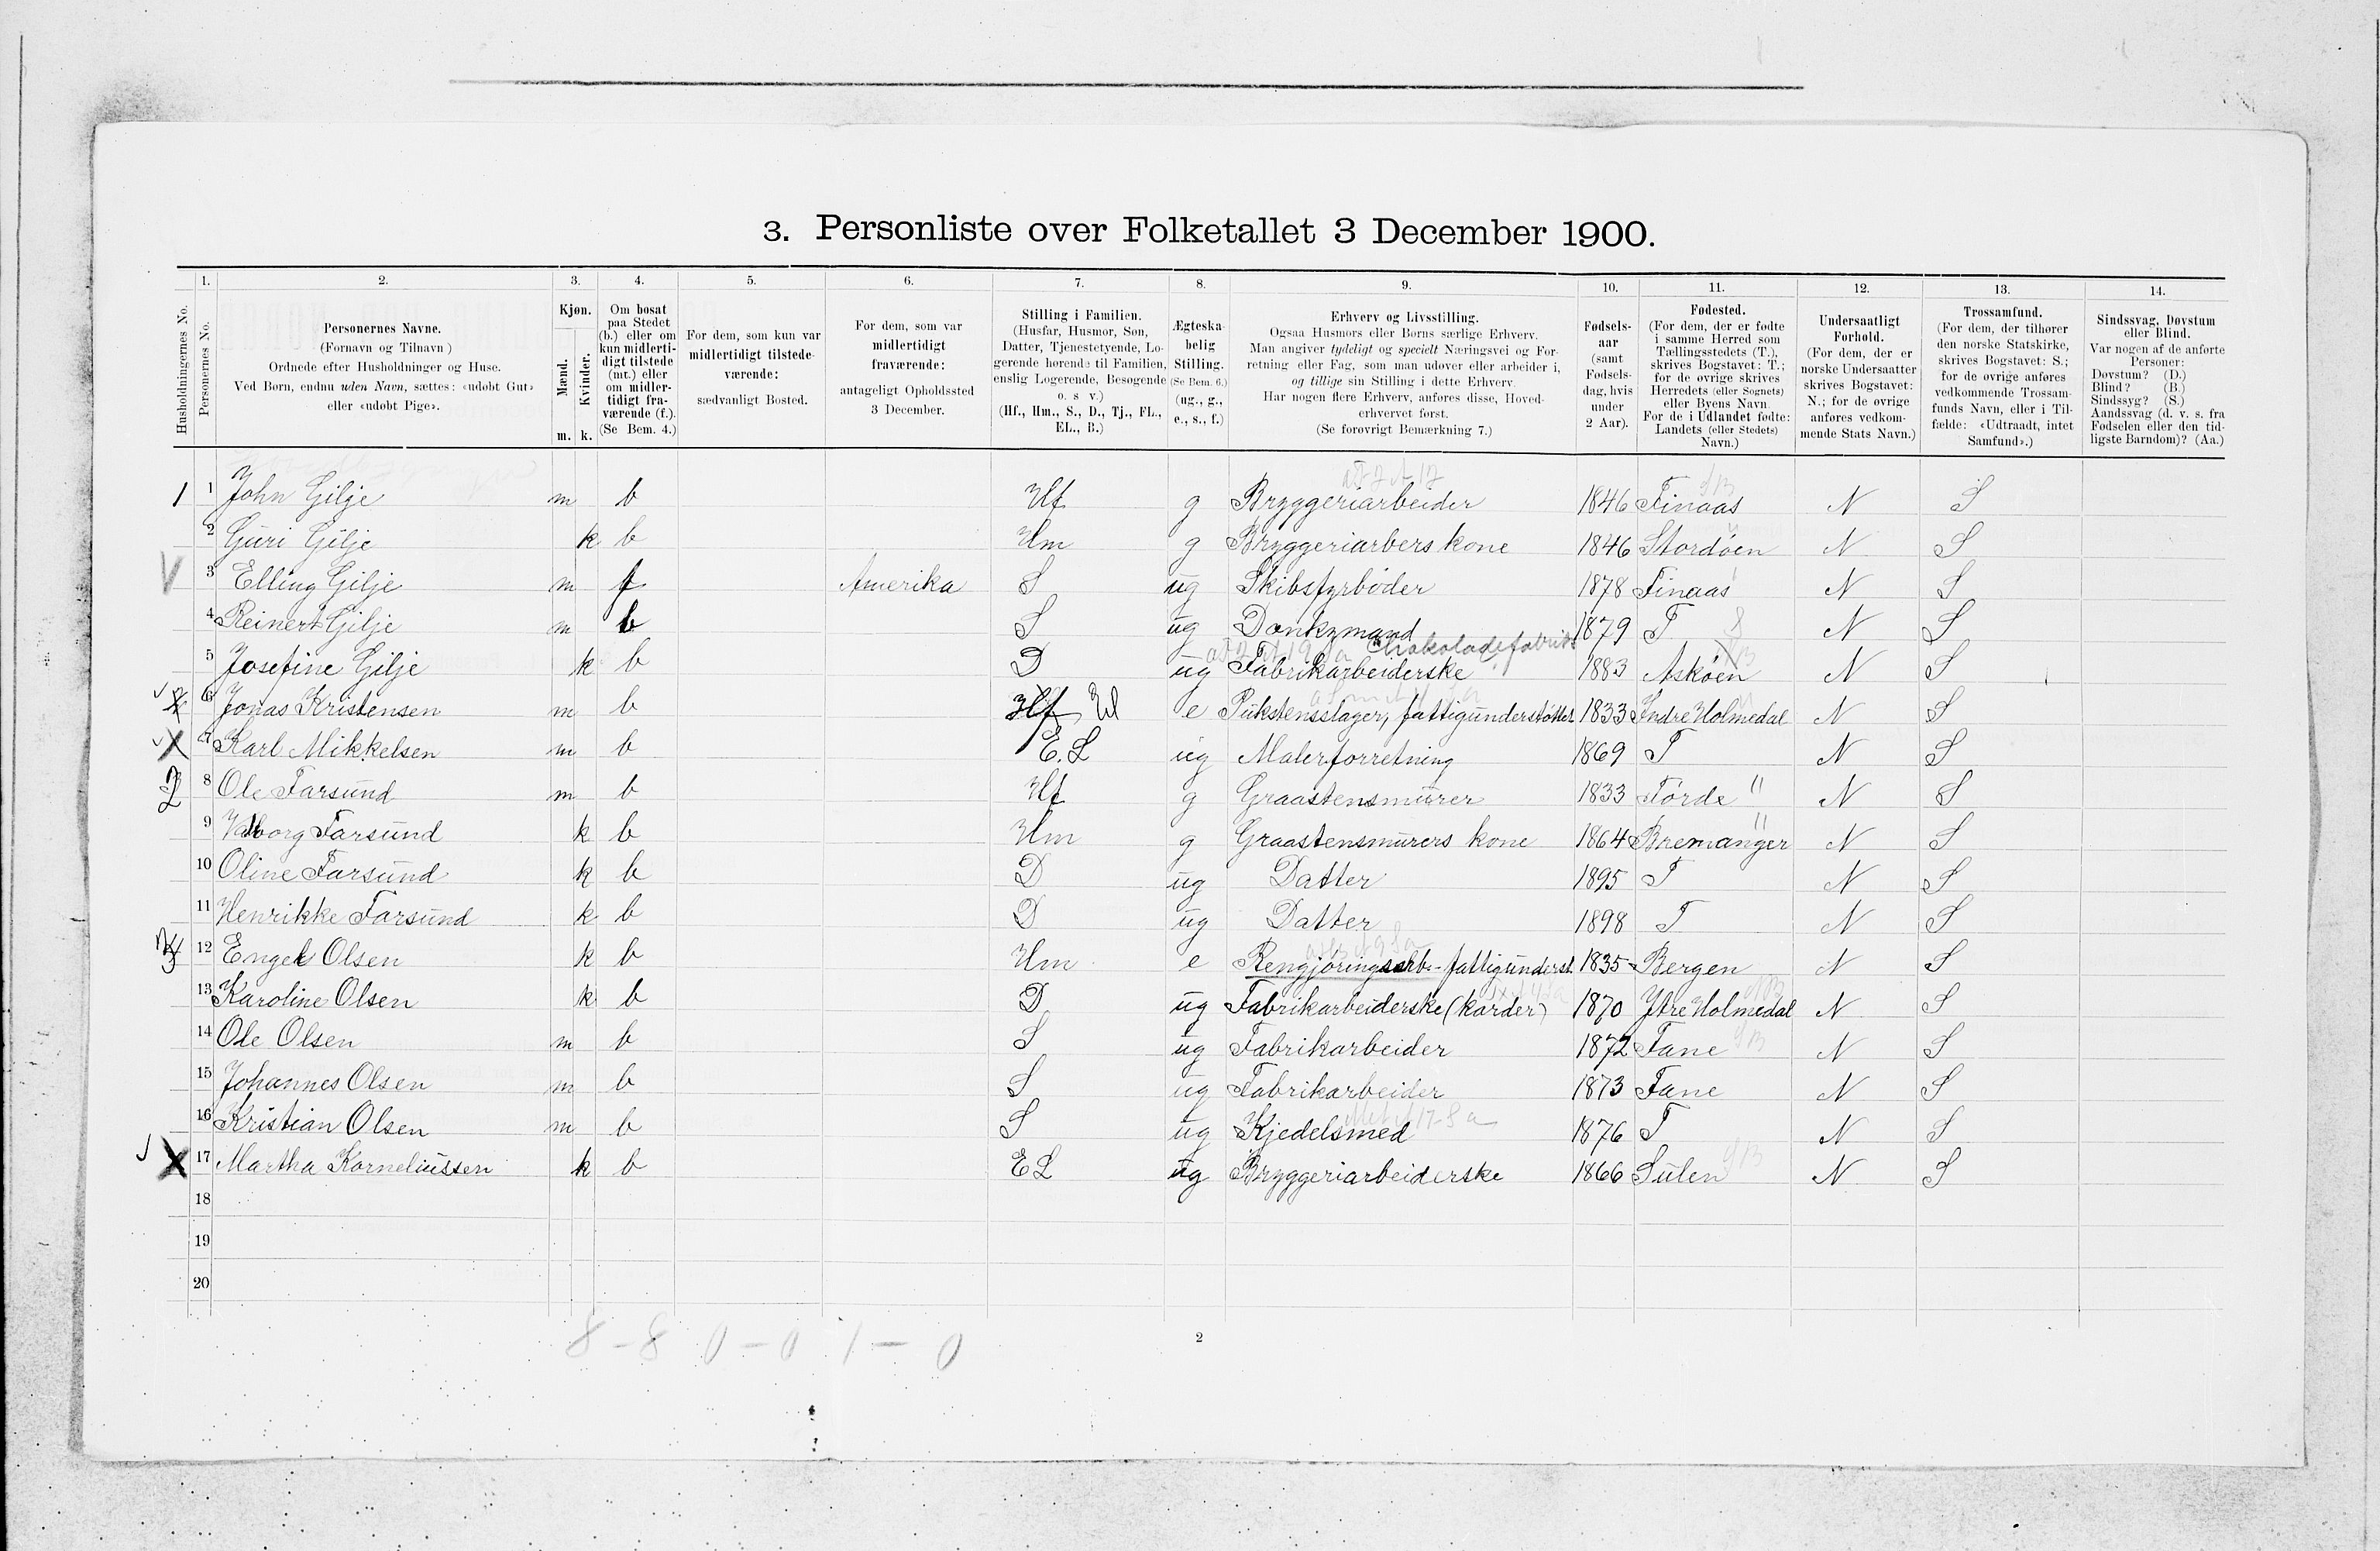 3. Personliste over Folketallet 3 December 1900.
1. 2. 3. 4. 5. 6. 7. 8. 9. 10. 11. 12. 13. 14.
Husholdningernes No.
Personernes No.
Personernes Navne.
(Fornavn og Tilnavn)
Ordnede efter Husholdninger og Huse.
Ved Børn, endnu uden Navn, sættes: «udøbt Gut»
eller «udøbt Pige».
Kjøn.
Mænd.
Kvinder.
m. k.
Om bosat
paa Stedet
(b.) eller om
kun midlerti-
digt tilstede
(mt.) eller
om midler-
tidigt fra-
værende (f.).
(Se Bem. 4.)
For dem, som kun var
midlertidigt tilstede-
værende:
sædvanligt Bosted.
For dem, som var
midlertidigt
fraværende:
antageligt Opholdssted
3 December.
Stilling i Familien.
(Husfar, Husmor, Søn,
Datter, Tjenestetyende, Lo-
gerende hørende til Familien,
enslig Logerende, Besøgende
o. s. v.)
(Hf., Hm., S., D., Tj., FL.,
EL., B.)
Ægteska-
belig
Stilling.
(Se Bem. 6.)
(ug., g.,
e., s., f.)
Erhverv og Livsstilling.
Ogsaa Husmors eller Børns særlige Erhverv.
Man angiver tydeligt og specielt Næringsvei og For-
retning eller Fag, som man udøver eller arbeider i,
og tillige sin Stilling i dette Erhverv.
Har nogen flere Erhverv, anføres disse, Hoved-
erhvervet først.
(Se forøvrigt Bemærkning 7.)
Fødsels-
aar
(samt
Fødsels-
dag, hvis
under
2 Aar).
Fødested.
(For dem, der er fødte
i samme Herred som
Tællingsstedets (T.),
skrives Bogstavet: T.;
for de øvrige skrives
Herredets (eller Sognets)
eller Byens Navn.
For de i Udlandet fødte:
Landets (eller Stedets)
Navn.)
Undersaatligt
Forhold.
(For dem, der er
norske Undersaatter
skrives Bogstavet:
N.; for de øvrige
anføres vedkom-
mende Stats Navn.)
Trossamfund.
(For dem, der tilhører
den norske Statskirke,
skrives Bogstavet: S.;
for de øvrige anføres
vedkommende Trossam-
funds Navn, eller i Til-
fælde: «Udtraadt, intet
Samfund».)
Sindssvag, Døvstum
eller Blind.
Var nogen af de anførte
Personer:
Døvstum? (D.)
Blind? (B.)
Sindssyg? (S.)
Aandssvag (d. v. s. fra
Fødselen eller den tid-
ligste Barndom)? (Aa.)
1 1 John Gilje m b Hf g Bryggeriarbeider 1846 Finaas N S
2 Guri Gilje k b Hm g Bryggeriarbers kone 1846 Stordøen N S
3 Elling Gilje m f Amerika S ug Skibsfyrbøder 1878 Finaas N S
4 Reinert Gilje m b S ug Donkymand 1879 T N S
Chokoladefabrik
5 Josefine Gilje k b D ug Fabrikarbeiderske 1883 Askøen N S
6 Jonas Kristensen m b Hf El e Pukstensslager, fattigunderstøttet 1833 Indre Holmedal N S
7 Karl Mikkelsen m b E.L ug Malerforretning 1869 T N S
2 8 Ole Farsund m b Hf g Graastensmurer 1833 Førde " N S
9 Valborg Farsund k b Hm g Graastensmurers kone 1864 Bremanger " N S
10 Oline Farsund k b D ug Datter 1895 T N S
11 Henrikke Farsund k b D ug Datter 1898 T N S
12 Engel Olsen k b Hm e Rengjøringsarb.- fattigunderst. 1835 Bergen N S
13 Karoline Olsen k b D ug Fabrikarbeiderske (karder) 1870 Ytre Holmedal N S
14 Ole Olsen m b S ug Fabrikarbeider 1872 Fane N S
15 Johannes Olsen m b S ug Fabrikarbeider 1873 Fane N S
16 Kristian Olsen m b S ug Kjedelsmed 1876 T N S
X 17 Martha Korneliussen k b EL ug Bryggeriarbeiderske 1866 Sulen N S
18
19
20
8-8 0-0 1-0
2